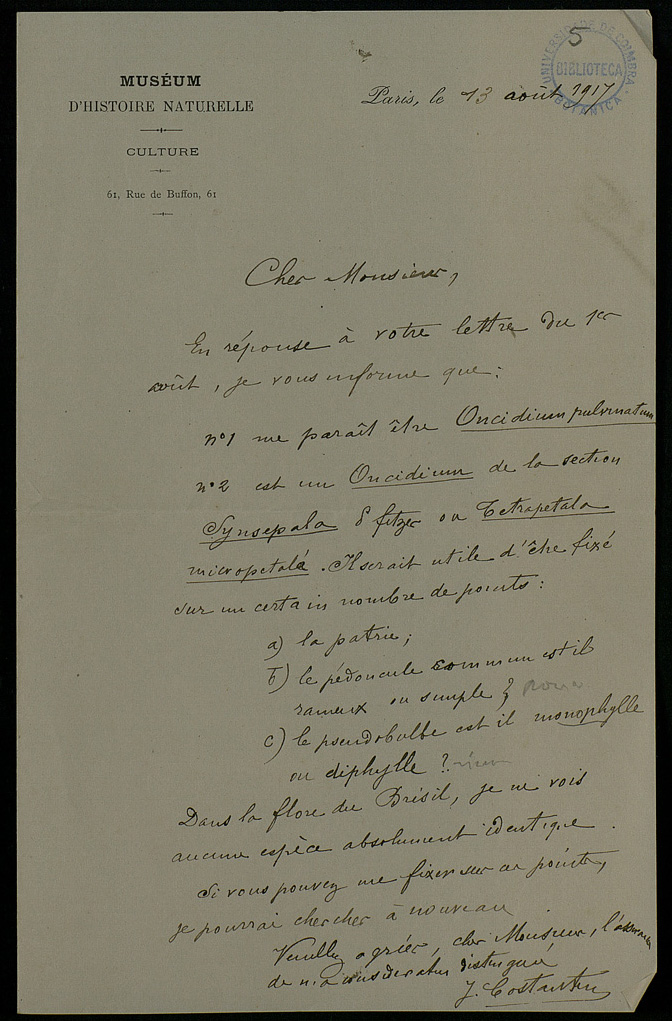 5
UNIVERSIDADE DE COIMBRA
BIBLIOTECA
BOTANICA
MUSÉUM
D'HISTOIRE NATURELLE
CULTURE
61, Rue de Buffon, 61
Paris, le 13 août 1917
Cher Monsieur,
En réponse à votre lettre du 1er
août, je vous informe que :
n°1 me paraît être Oncidium pulvinatum
n°2 est un Oncidium de la section
Synsepala Pfitzer ou Tetrapetala
micropetala. Il serait utile d'être fixé
sur un certain nombre de points :
a) la patrie ;
b) le pédoncule commun est il
rameux ou simple ?
c) le pseudobulbe est il monophylle
ou diphylle ?
Dans la flore du Brésil, je ne vois
aucune espèce absolument identique.
Si vous pouvez me fixer sur ces points,
je pourrai chercher à nouveau
Veuillez agréer, cher Monsieur, l'assurance
de ma considération distinguée
J. Costantin